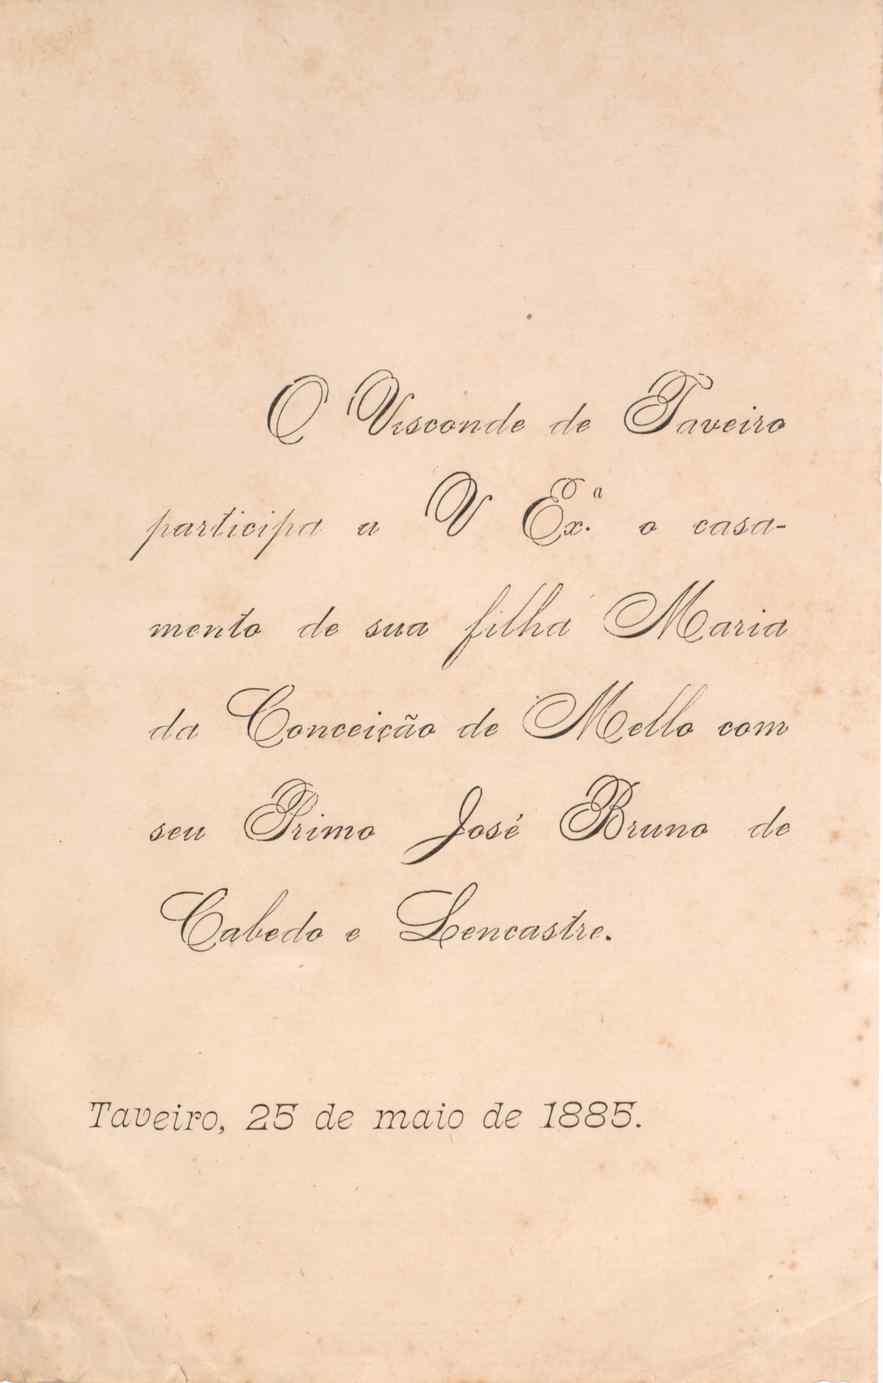 O Visconde de Taveiro
participa a V Ex.ª o casa-
mento de sua filha Maria
da Conceição de Mello com
seu Primo José Bruno de
Cabedo e Lencastre.
Taveiro, 25 de maio de 1885.